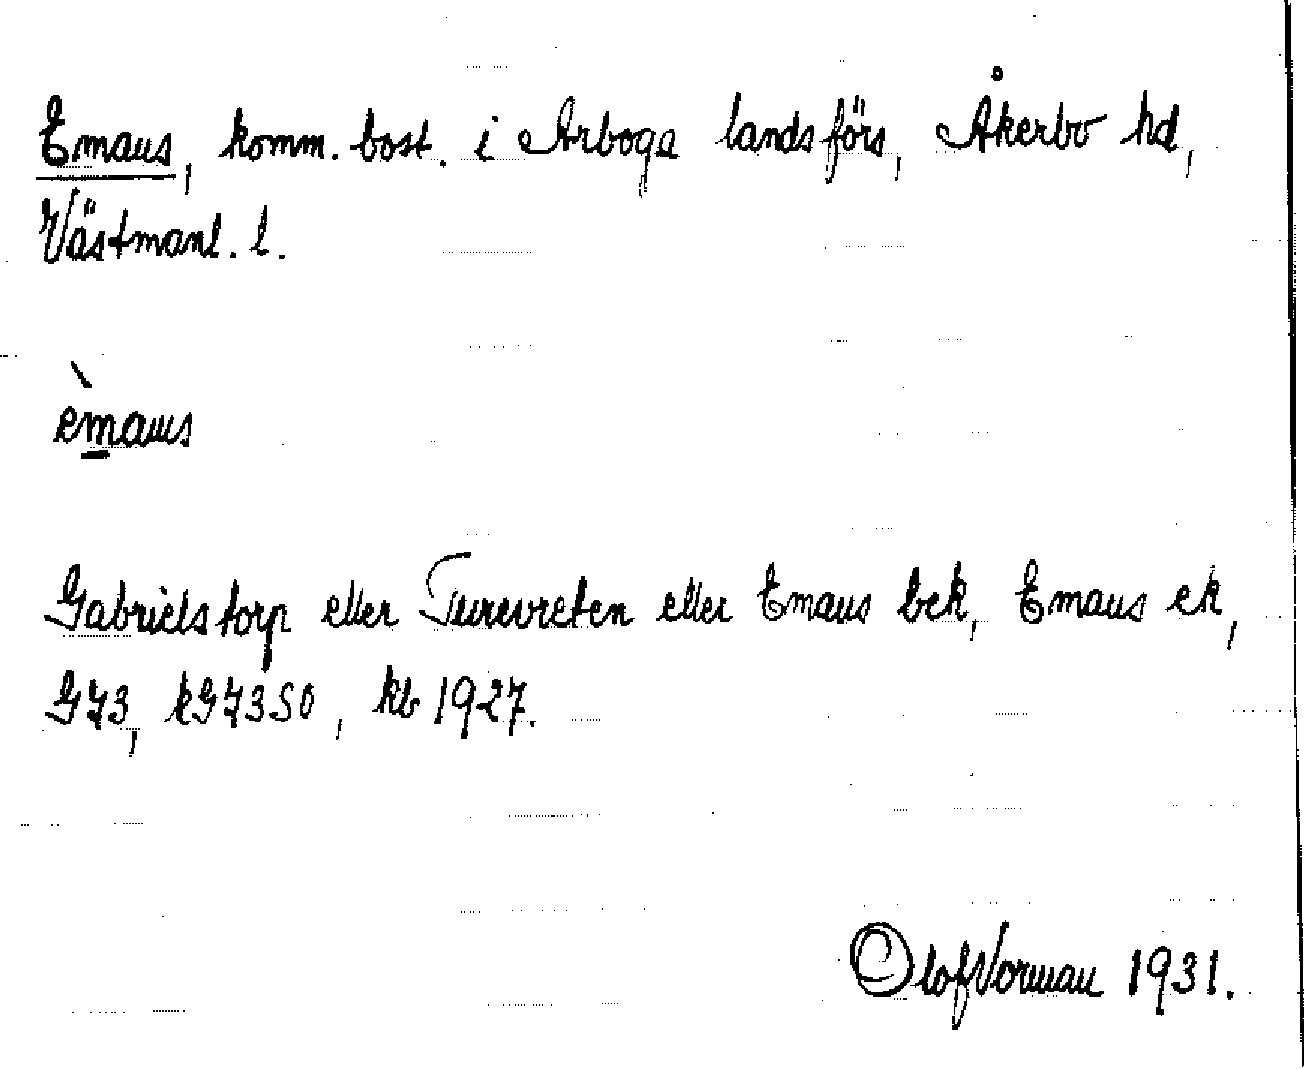 Emaus, komm. bost. i Arboga landsförs, Åkerbo hd,
Västmanl. l.
èmaus
Gabrielstorp eller Turevreten eller Emaus bek, Emaus ek,
GJ3, kGJ3SO, kb 1927.
Olof Vorman 1931.